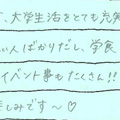 、大学生活をとても充実
い人ばかりだし、学食
イベント事もたくさん!!
しみです〜♡